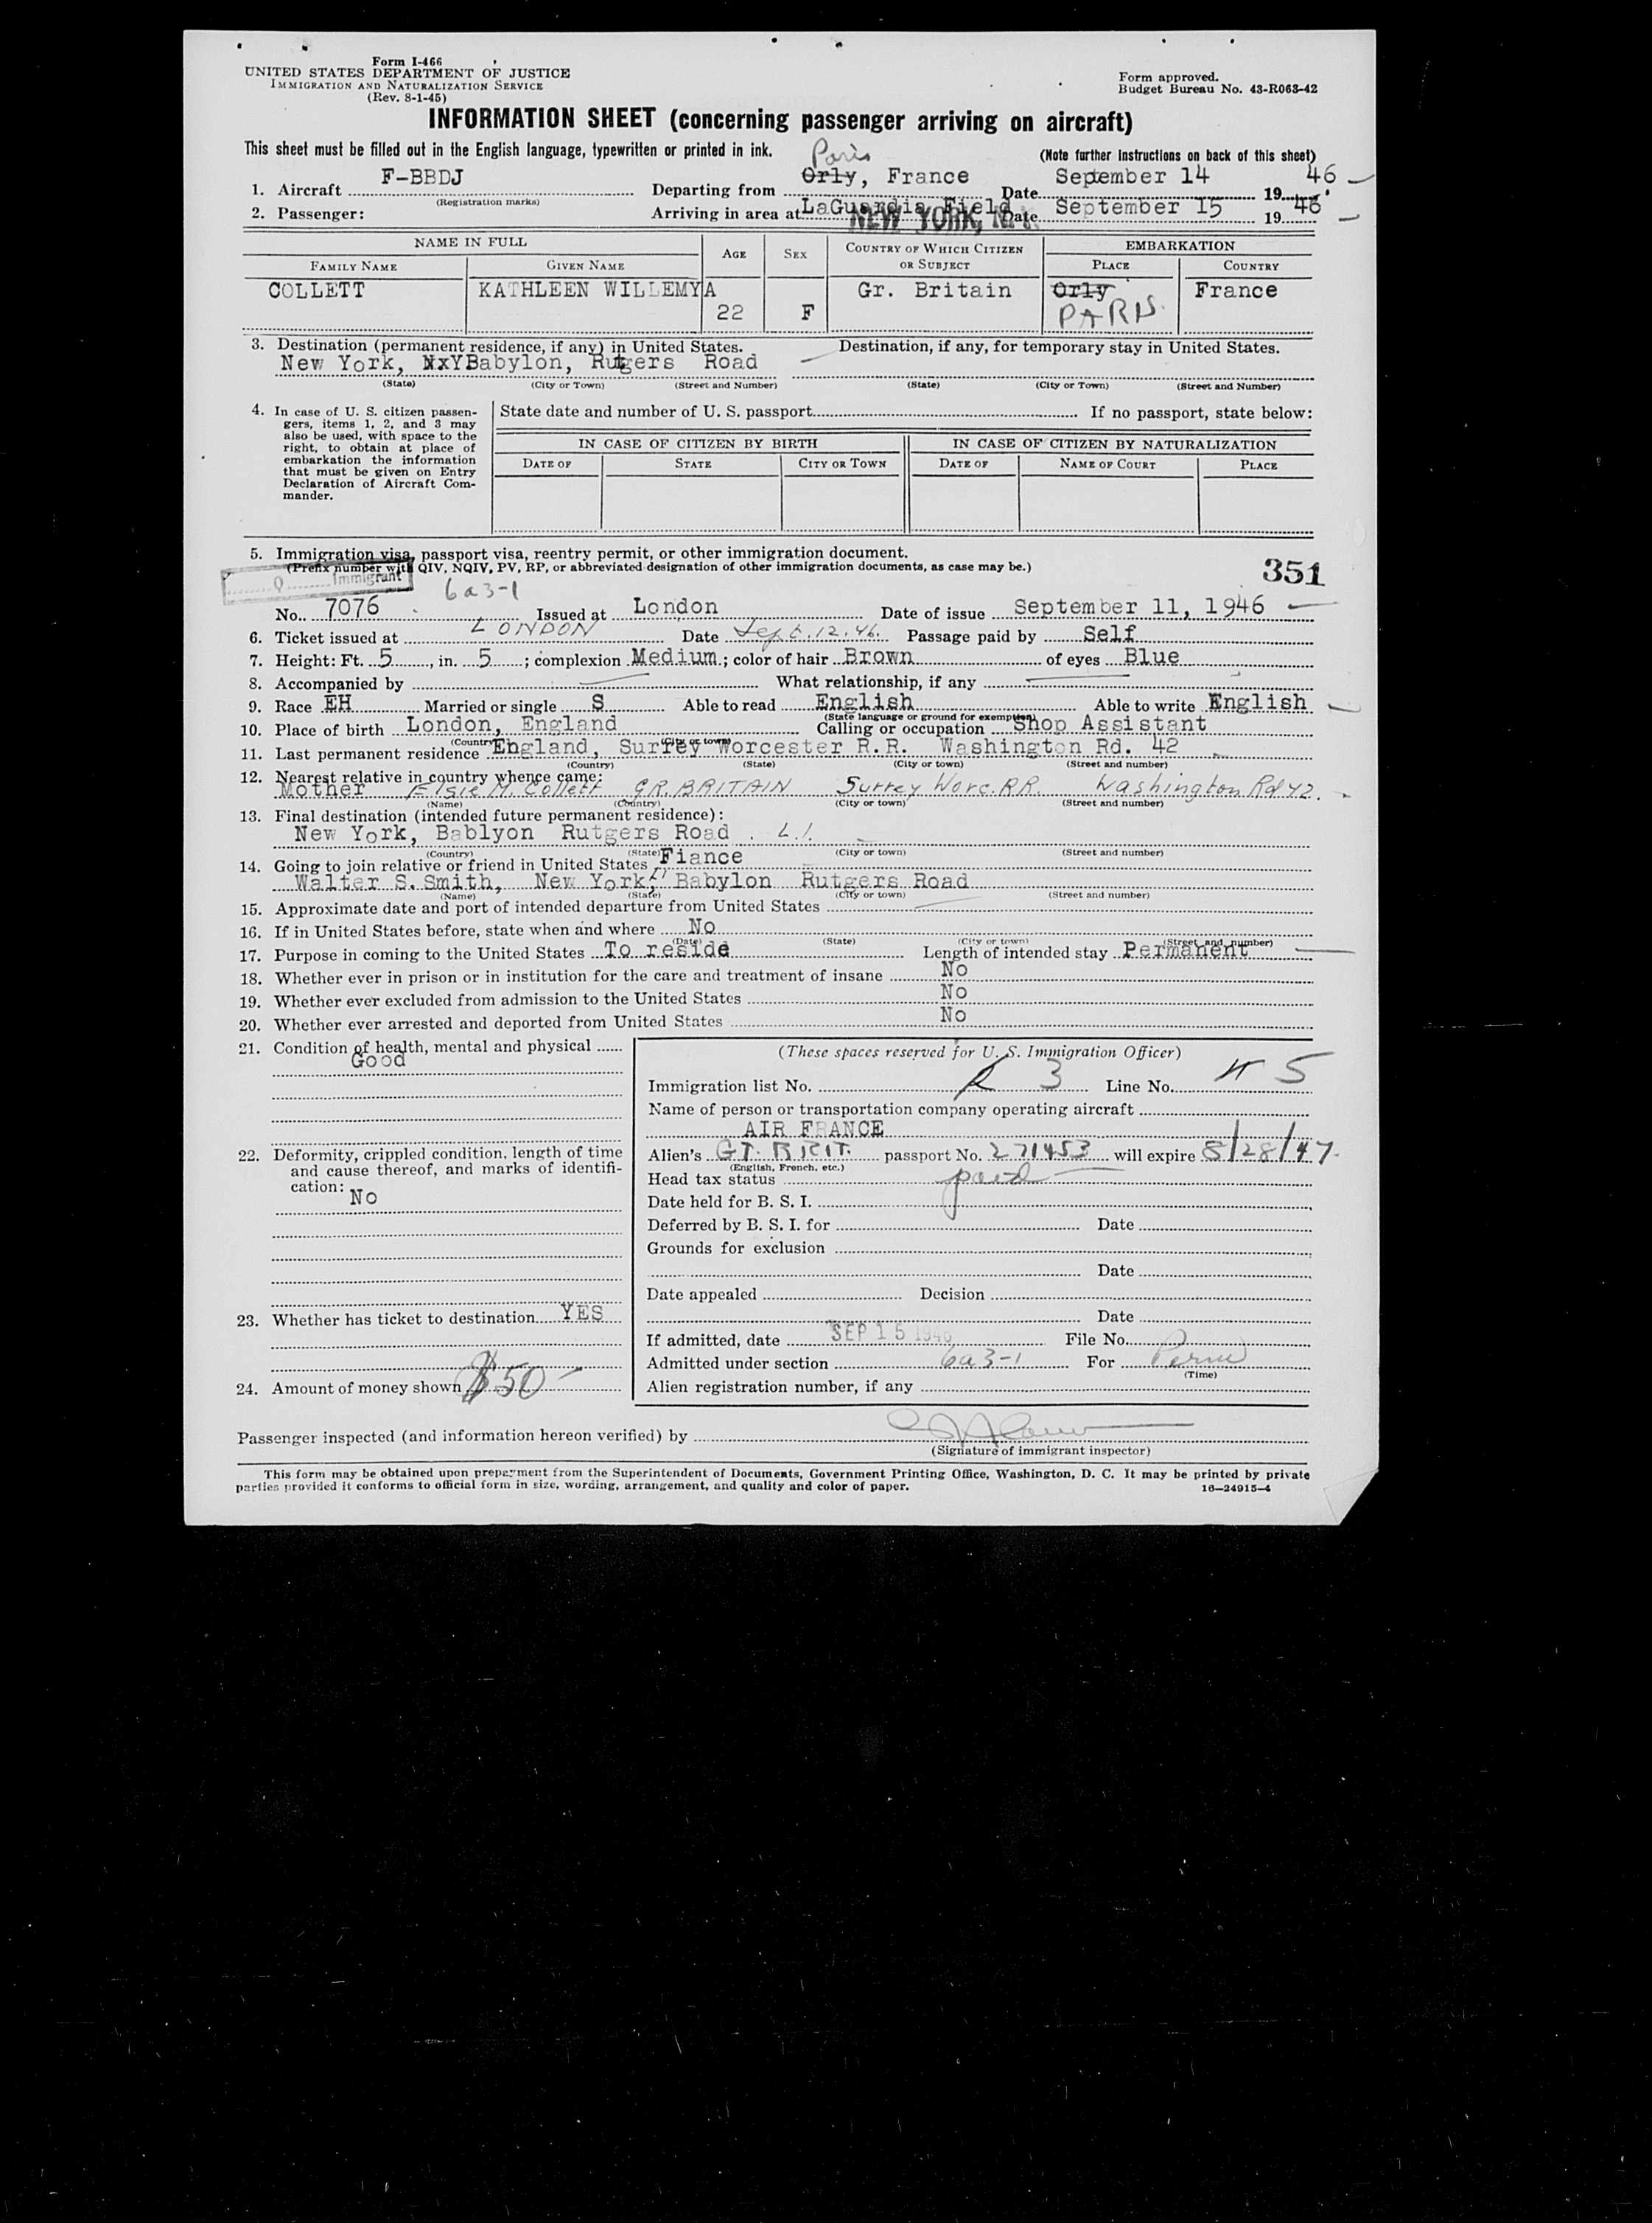 Form I-466
UNITED STATES DEPARTMENT OF JUSTICE
IMMIGRATION AND NATURALIZATION SERVICE
(Rev. 8-1-45)
Form approved.
Budget Bureau No. 43-R063-42
INFORMATION SHEET (concerning passenger arriving on aircraft)
This sheet must be filled out in the English language, typewritten or printed in ink.
(Note further instructions on back of this sheet)
Paris
1. Aircraft F-BBDJ Departing from Orly, France Date September 14 1946
(Registration marks)
2. Passenger: Arriving in area at LaGuardia Field Date September 15 1946
NEW YORK, N.Y.
NAME IN FULL AGE SEX COUNTRY OF WHICH CITIZEN OR SUBJECT EMBARKATION
FAMILY NAME GIVEN NAME PLACE COUNTRY
COLLETT KATHLEEN WILLEMYA 22 F Gr. Britain Orly PARIS France
3. Destination (permanent residence, if any) in United States. Destination, if any, for temporary stay in United States.
New York, NxYBabylon, Rutgers Road
(State) (City or Town) (Street and Number) (State) (City or Town) (Street and Number)
4. In case of U. S. citizen passen-
gers, items 1, 2, and 3 may
also be used, with space to the
right, to obtain at place of
embarkation the information
that must be given on Entry
Declaration of Aircraft Com-
mander.
State date and number of U. S. passport If no passport, state below:
IN CASE OF CITIZEN BY BIRTH IN CASE OF CITIZEN BY NATURALIZATION
DATE OF STATE CITY OR TOWN DATE OF NAME OF COURT PLACE
5. Immigration visa, passport visa, reentry permit, or other immigration document.
(Prefix number with QIV, NQIV, PV, RP, or abbreviated designation of other immigration documents, as case may be.)
351
Q Immigrant
6a3-1
No. 7076 Issued at London Date of issue September 11, 1946
6. Ticket issued at LONDON Date Sept. 12. 46. Passage paid by Self
7. Height: Ft. 5, in. 5; complexion Medium; color of hair Brown of eyes Blue
8. Accompanied by What relationship, if any
9. Race EH Married or single S Able to read English Able to write English
(State language or ground for exemption)
10. Place of birth London, England Calling or occupation Shop Assistant
(Country) (City or town)
11. Last permanent residence England, Surrey Worcester R.R. Washington Rd. 42
(Country) (State) (City or town) (Street and number)
12. Nearest relative in country whence came:
Mother Elsie M. Collett GR. BRITAIN Surrey Worc. RR. Washington Rd 42.
(Name) (Country) (City or town) (Street and number)
13. Final destination (intended future permanent residence):
New York, Bablyon Rutgers Road . L.I.
(Country) (State) (City or town) (Street and number)
14. Going to join relative or friend in United States Fiance
Walter S. Smith, New York, Babylon Rutgers Road
(Name) (State) (City or town) (Street and number)
15. Approximate date and port of intended departure from United States
16. If in United States before, state when and where No
(Date) (State) (City or town) (Street and number)
17. Purpose in coming to the United States To reside Length of intended stay Permanent
18. Whether ever in prison or in institution for the care and treatment of insane No
19. Whether ever excluded from admission to the United States No
20. Whether ever arrested and deported from United States No
21. Condition of health, mental and physical
Good
22. Deformity, crippled condition, length of time
and cause thereof, and marks of identifi-
cation:
No
23. Whether has ticket to destination YES
24. Amount of money shown $50-
(These spaces reserved for U. S. Immigration Officer)
Immigration list No. 3 Line No. 5
Name of person or transportation company operating aircraft
AIR FRANCE
Alien's GT. BRIT. passport No. 271453 will expire 8/28/47.
(English, French, etc.)
Head tax status paid
Date held for B. S. I.
Deferred by B. S. I. for Date
Grounds for exclusion
Date
Date appealed Decision
Date
If admitted, date SEP 15 1946 File No.
Admitted under section 6a3-1 For Perm
(Time)
Alien registration number, if any
Passenger inspected (and information hereon verified) by
(Signature of immigrant inspector)
This form may be obtained upon prepayment from the Superintendent of Documents, Government Printing Office, Washington, D. C. It may be printed by private
parties provided it conforms to official form in size, wording, arrangement, and quality and color of paper.
16—24915-4